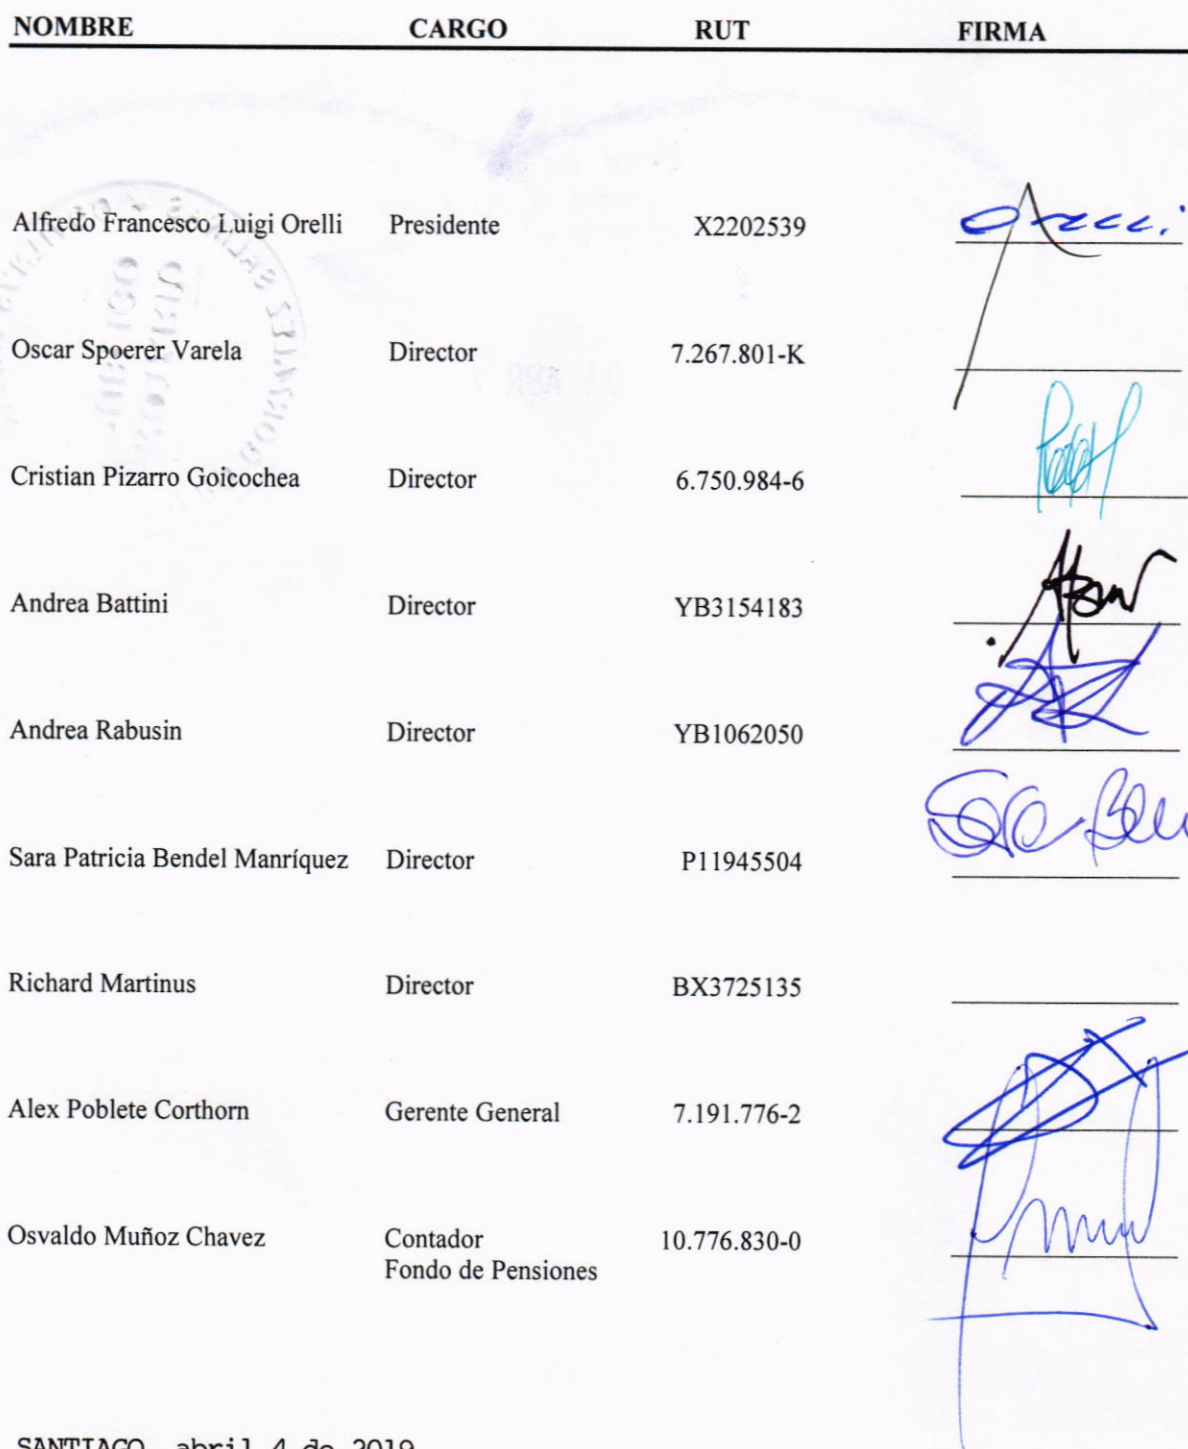 NOMBRE CARGO RUT FIRMA
Alfredo Francesco Luigi Orelli Presidente X2202539
Oscar Spoerer Varela Director 7.267.801-K
Cristian Pizarro Goicochea Director 6.750.984-6
Andrea Battini Director YB3154183
Andrea Rabusin Director YB1062050
Sara Patricia Bendel Manríquez Director P11945504
Richard Martinus Director BX3725135
Alex Poblete Corthorn Gerente General 7.191.776-2
Osvaldo Muñoz Chavez Contador 10.776.830-0
Fondo de Pensiones
SANTIAGO, abril 4 de 2019